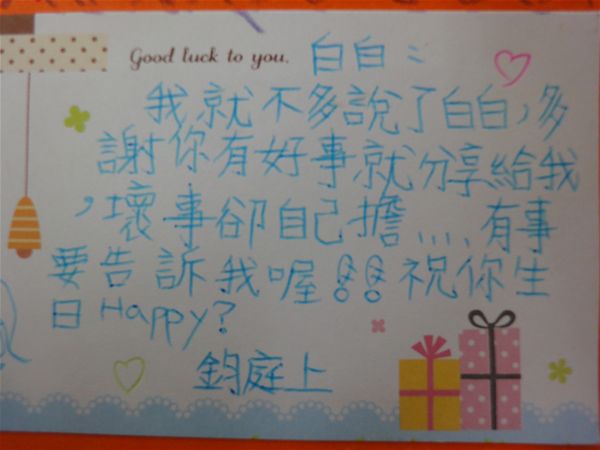 Good luck to you. 白白:
我就不多說了白白,多
謝你有好事就分享給我
,壞事卻自己擔...有事
要告訴我喔!!祝你生
日Happy?
鈞庭上